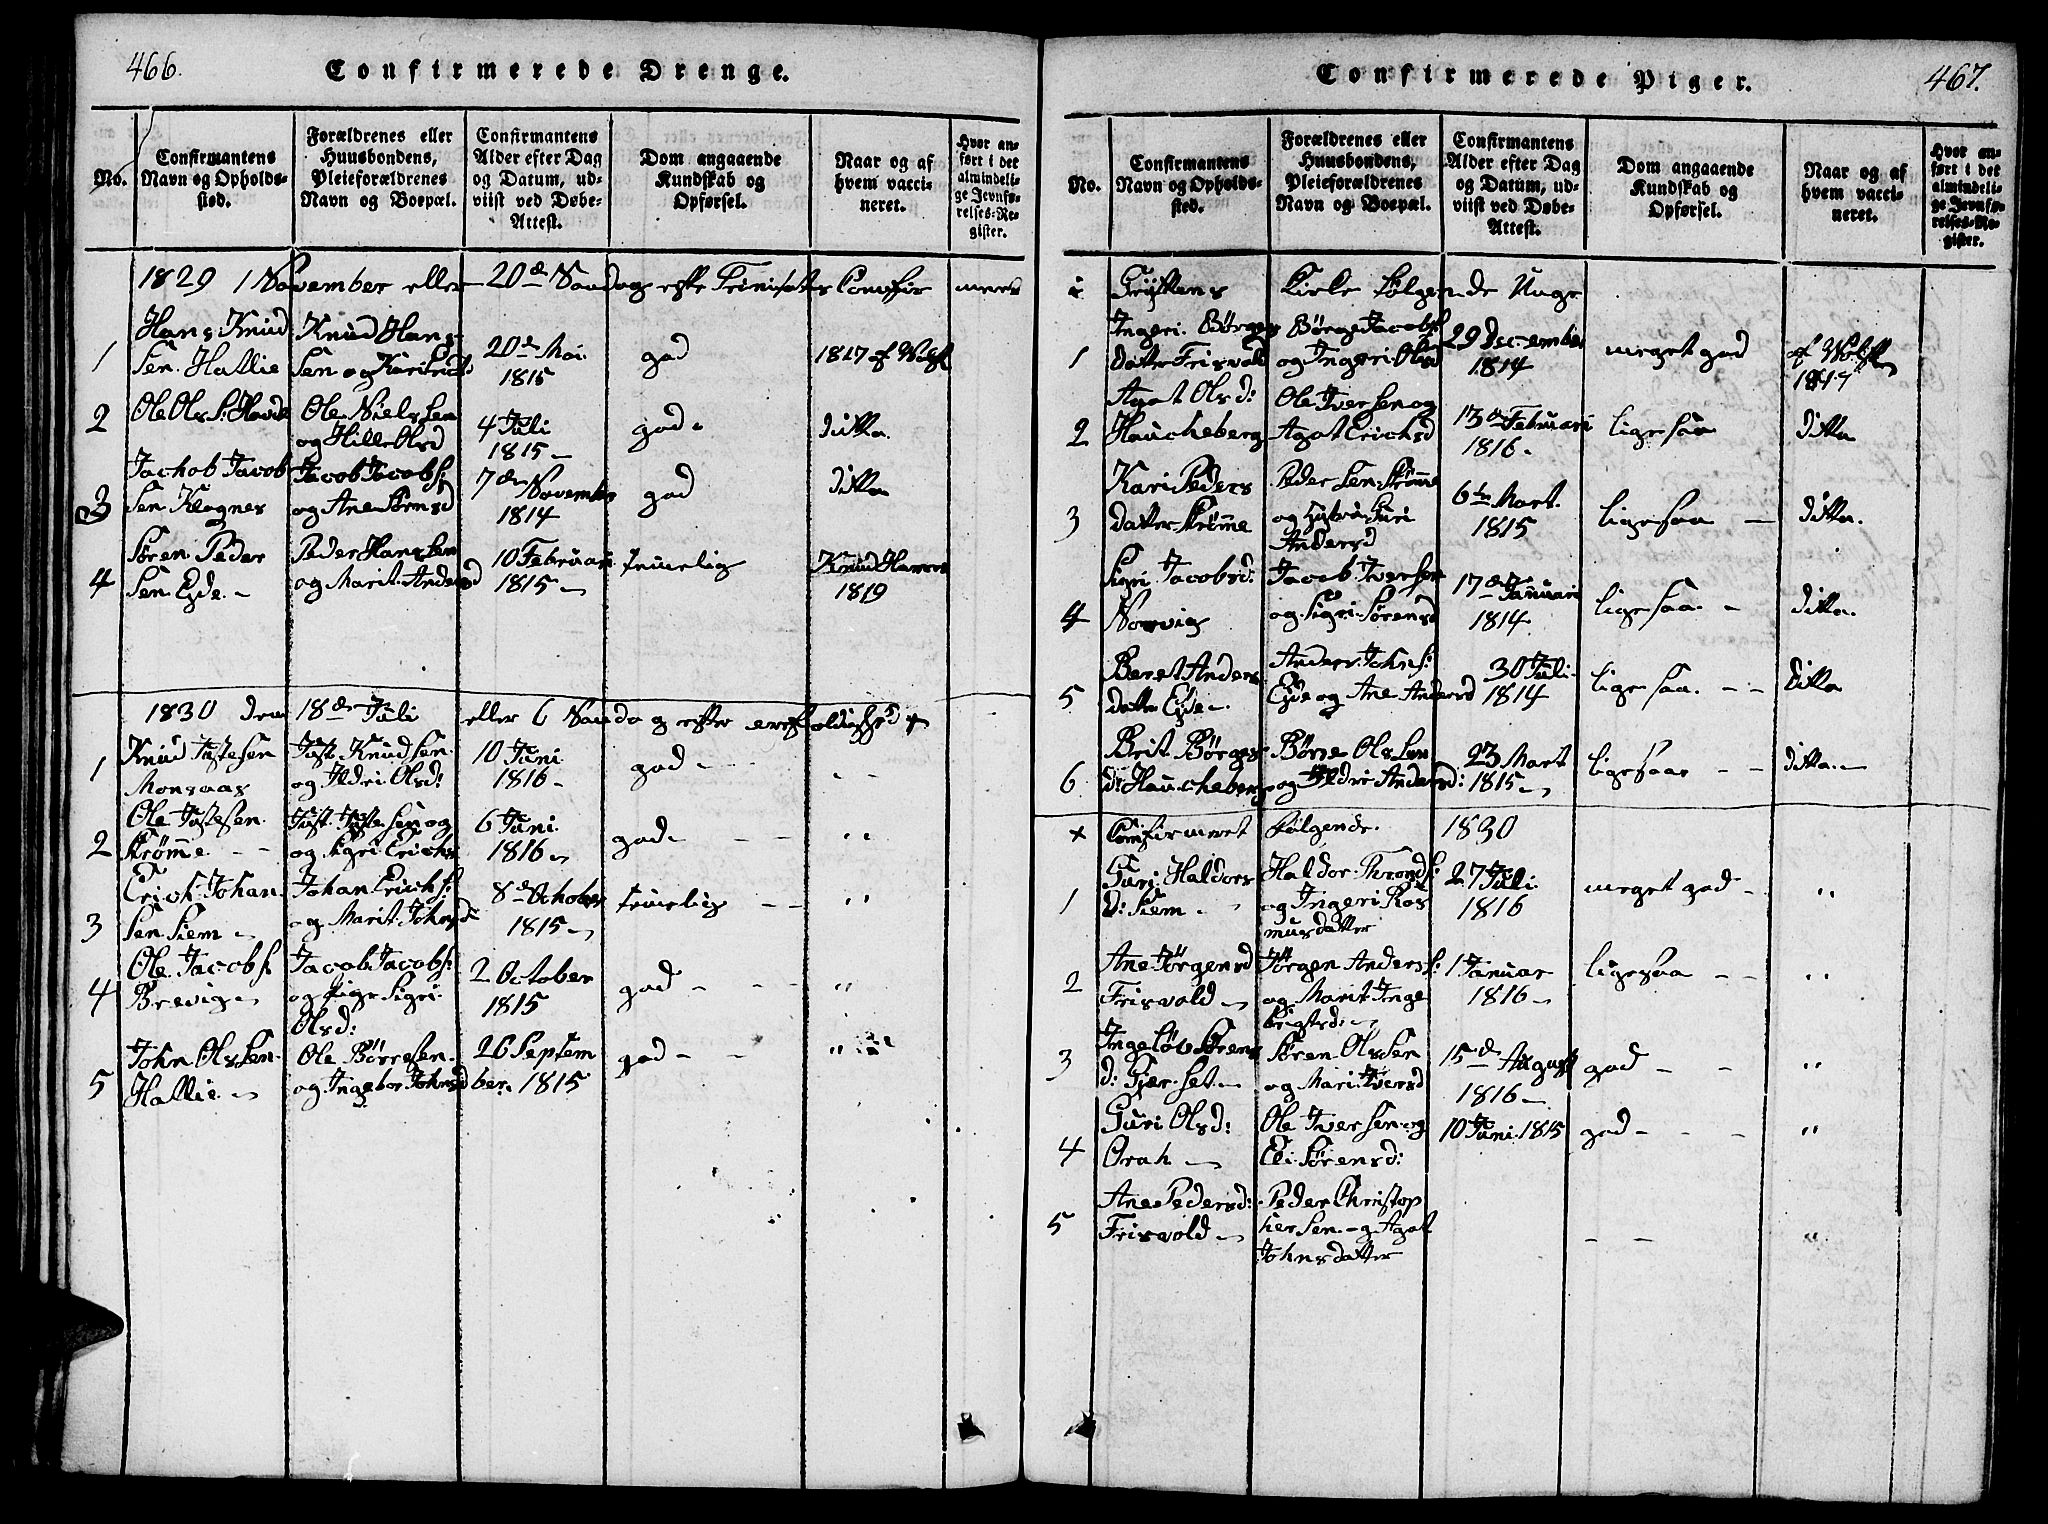 466.
Confirmerede Drenge.
No.
Confirmantens Navn og Opholds-sted.
Forældrenes eller Huusbondens, Pleieforældrenes Navn og Boepæl.
Confirmantens Alder efter Dag og Datum, ud-viist ved Døbe-Attest.
Dom angaaende Kundskab og Opførsel.
Naar og af hvem vacci-neret.
Hvor an-ført i det almindeli-ge Jevnfø-relses-Re-gister.
1829 1 November eller 20de Sondag efte Trinitatis Comfir meres
1 Hans Knud Sen Hallie
Knud Hans Sen og Kari
20de Mai 1815
god
1817 af
2 Ole Ols S:
Ole Niels Sen og Hille Olsd
4 Juli 1815
god
ditto
3 Jachob Jacob Sen Klognes
Jacob Jacobs: og Ane
7de November 1814
god
ditto
4 Søren Peder Sen Eyde
Peder Hans Sen og Marit Andersd
10 Februari 1815
temelig
Knud Hamnes 1819
1830 den 18de Juli eller 6 Sondag efter
1 Knud Justesen Monsaas
Just Knud Sen og Ildri Olsd:
10 Juni 1816
god
2 Ole Justesen Strømme
Just Juste Sen og og Sigri Erichs
6 Juni 1816
god
3 Erich Johan Sen Siem
Johan Erichs: og Marit Johnsd:
8de October 1815
temelig
4 Ole Jacobs: Brevig
Jacob Jacobs: og Pige Sigri Olsd:
2 October 1815
god
5 John Ols Sen Hallie
Ole Børresen og Ingebor Johnsd
26 Septem ber. 1815
god
467.
Confirmerede Piger.
No.
Confirmantens Navn og Opholds-sted.
Forældrenes eller Huusbondens, Pleieforældrenes Navn og Boepæl.
Confirmantens Alder efter Dag og Datum, ud-viist ved Døbe-Attest.
Dom angaaende Kundskab og Opførsel.
Naar og af hvem vacci-neret.
Hvor an-ført i det almindeli-ge Jevnfø-relses-Re-gister.
i Grÿttens Kirke følgende Unge
1 Ingeri Børges datter Frisvold
Børge Jacobs: og Ingeri Olsd
29 December 1814
meget god
1817
2 Agat Olsd: Haucheberg
Ole Iversen og Agat Erichsd
13de Februari 1816
ligesaa
ditto
3 Kari Peders datter Strømme
Peder Sen Strømme og Hustrue Guri Andersd
6te Mart. 1815
ligesaa
ditto.
4 Sigri Jacobsd: Norvig
Jacob Iversen og Sigri Sørensd
17de Januari 1814
ligesaa
ditto.
5 Beret Anders datter Eyde
Anders Johns: Eyde og Ane Andersd
30 Juli 1814
ligesaa
ditto
6 Brit Børges d: Haucheberg
Børge Ols Sen og Ildri Andersd:
23 Mart 1815
ligesaa
ditto
x Comfirmeret følgende 1830
1 Guri Haldors d: Siem
Haldor Tronds: og Ingeri Ras musdatter
27 Juli 1816
meget god
2 Ane Jørgensd Frisvold
Jørgen Anders: og Marit Inge brigtsd:
1 Januar 1816
ligesaa
3 Ingeløv Sørens d: Gjær set
Søren Ols Sen og Mari Iversd
15de August 1816
god
4 Guri Olsd: Orah
Ole Iver Sen og Eli Sørensd:
10 Juni 1815
god
5 Ane Pedersd: Frisvold
Peder Christop her Sen og Agat Johnsdatter